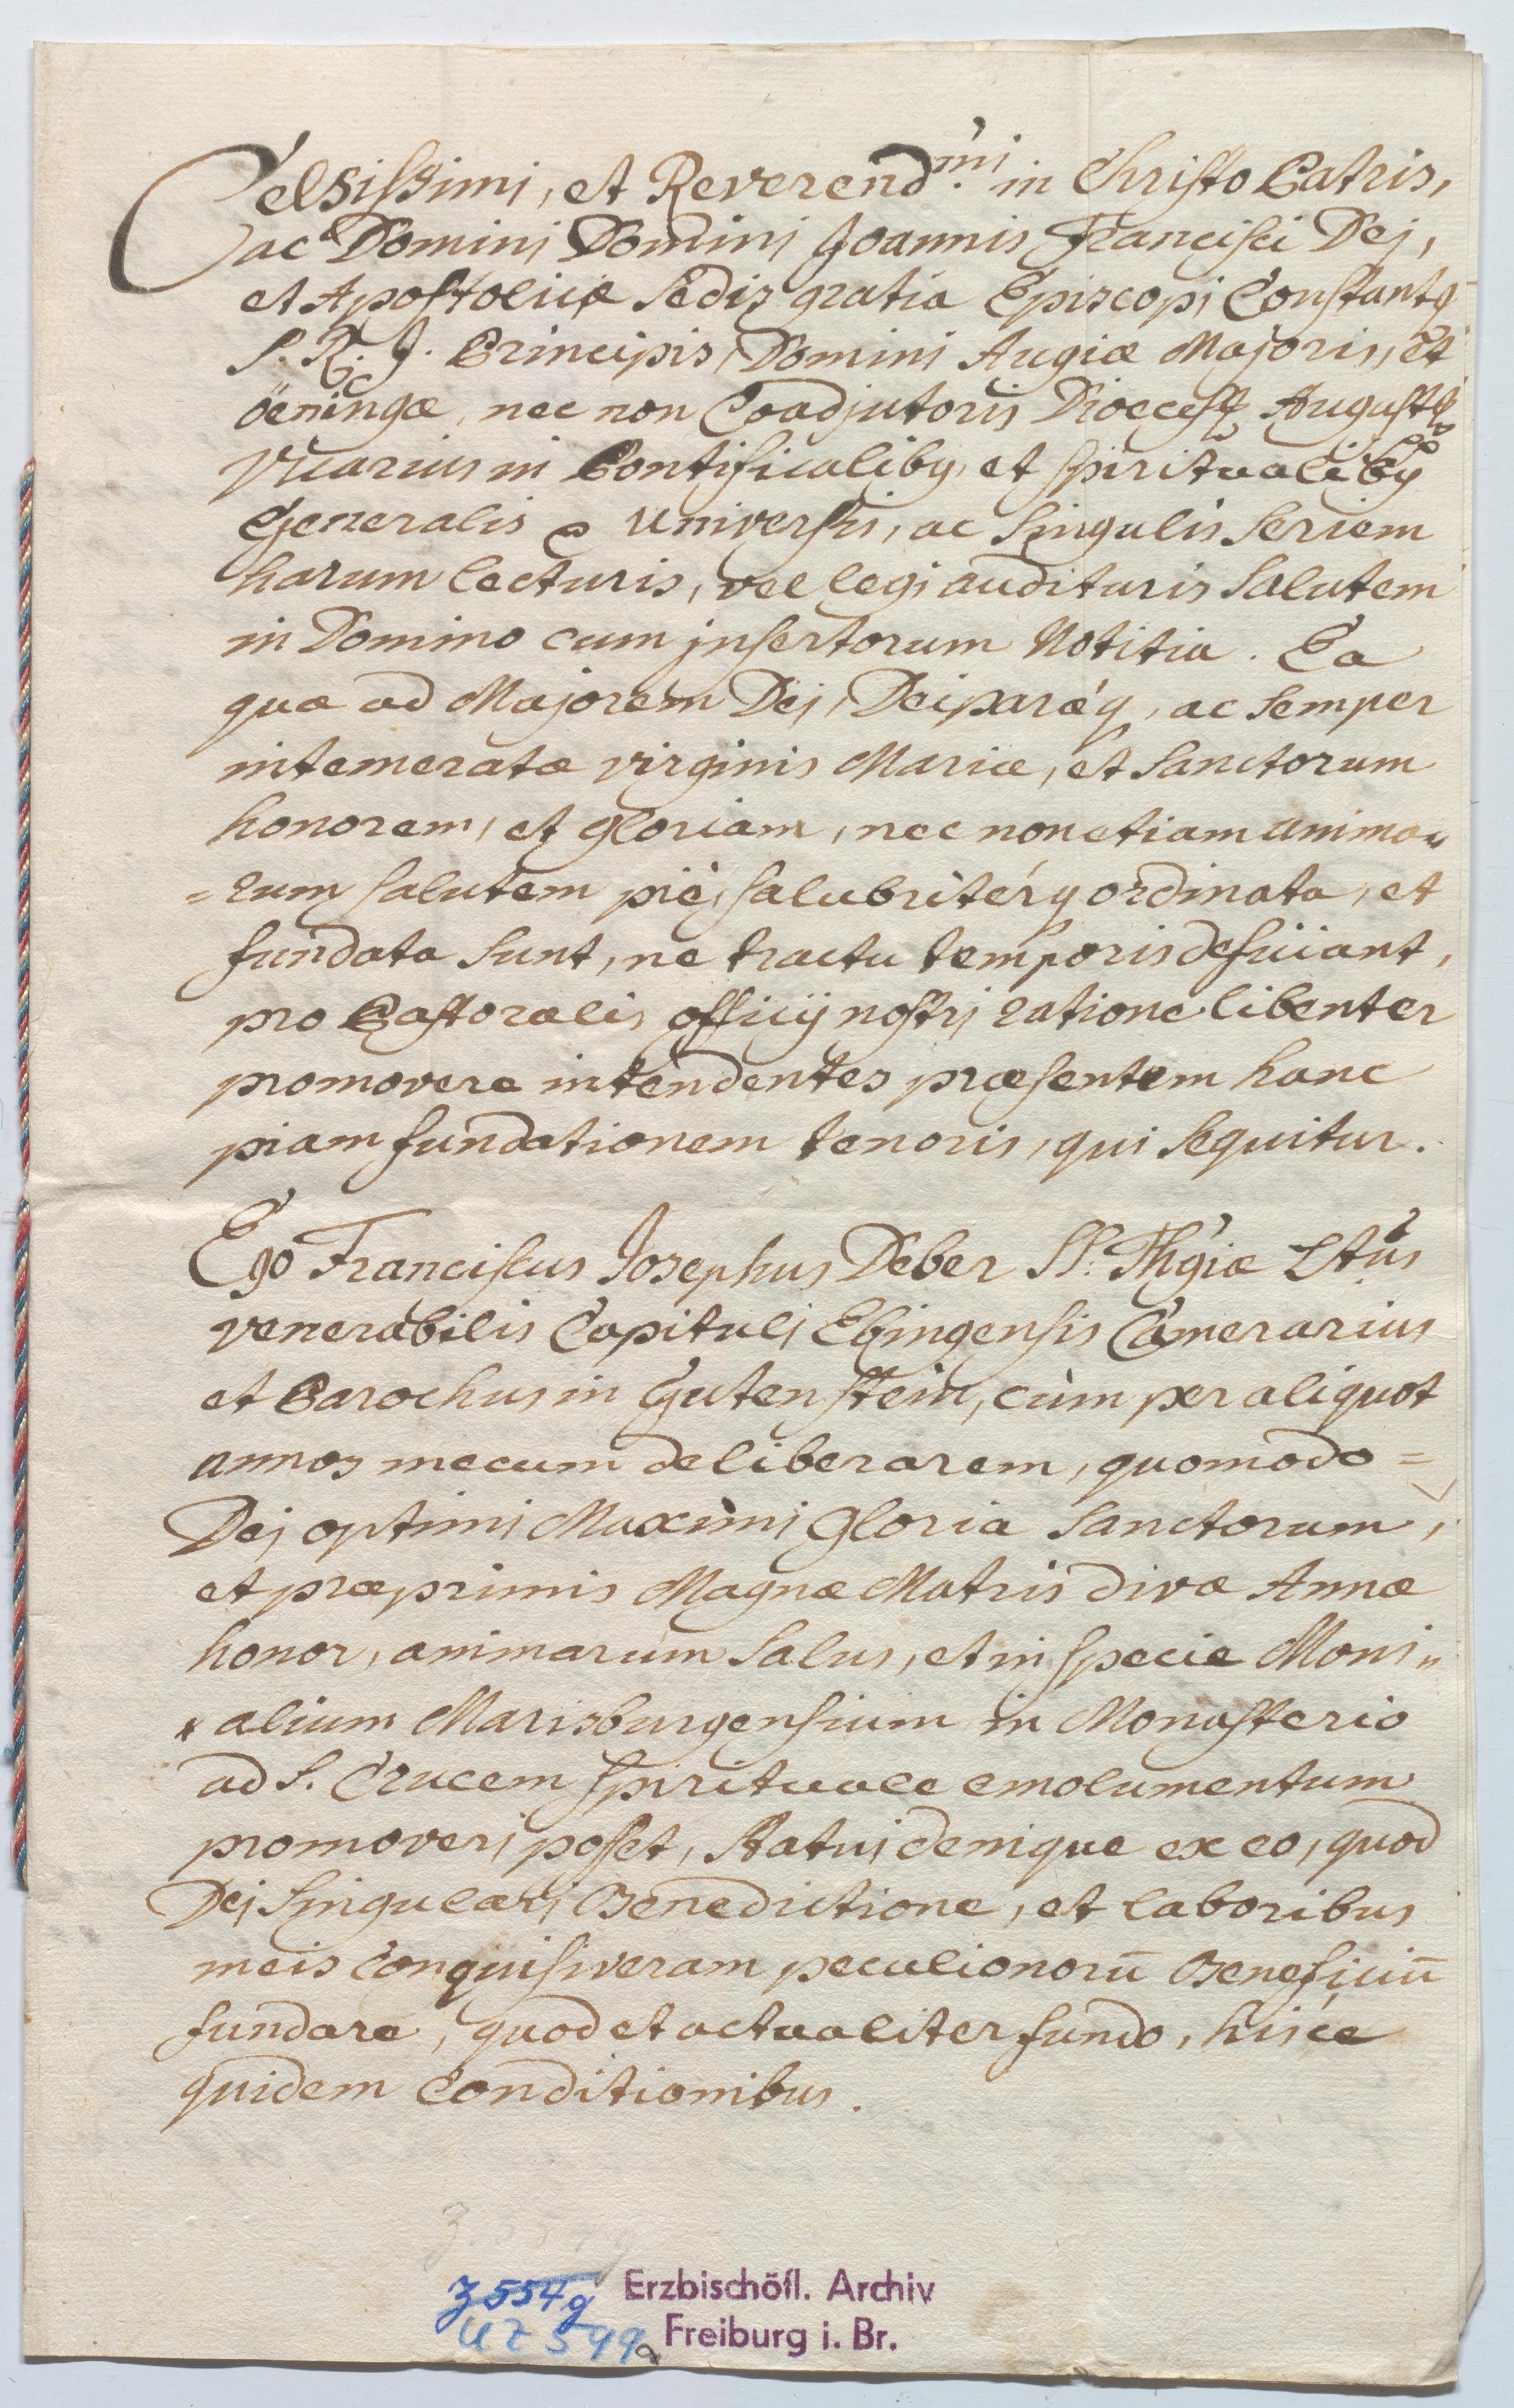 Celsissimi, et Reverend.mi in Christo Patris,
ac Domini Domini Joannis Francisci Dej,
et Apostolicæ Sedis gratia Episcopi Constantq
S. R. J. Principis, Domini Augiæ Majoris, et
öeningæ, nec non Coadjutoris Dioecesq Augustq
Vicarius in Pontificalibq et spiritualibq
Generalis universis, ac singulis seriem
harum lecturis, vel legi audituris Salutem
in Domino cum jnsertorum Notitia. Ea
quæ ad Majorem Dej, Deiparæq, ac semper
intemeratæ virginis Mariæ, et Sanctorum
honorem, et gloriam, nec non etiam anima„
=rum salutem piè, salubritérq ordinata, et
fundata sunt, ne tractu temporis deficiant,
pro Pastoralis officij nostrj ratione libenter
promovere intendentes præsentem hanc
piam fundationem tenoris, qui sequitur.
Ego Franciscus Josephus Deber SS. Thgiæ Ltũs
venerabilis Capitulj Ebingensis Camerarius
et Parochus in Gutenstein, cùm per aliquot
annos mecum deliberarem, quomodo=
Dej optimi Maximi Gloria Sanctorum,
et præprimis Magnæ Matris divæ Annæ
honor, animarum Salus, et in specie Moni„
alium Marisburgensium in Monasterio
ad S. Crucem spirituale emolumentum
promoverj posset, statui denique ex eo, quod
Dej singularj Benedictione, et laboribus
meis conquisiveram peculio honorũ Beneficiũ
fundare, quod et actualiter fundo, hisce
quidem Conditionibus.
Z 554g Erzbischöfl. Archiv
UZ 599a Freiburg i. Br.